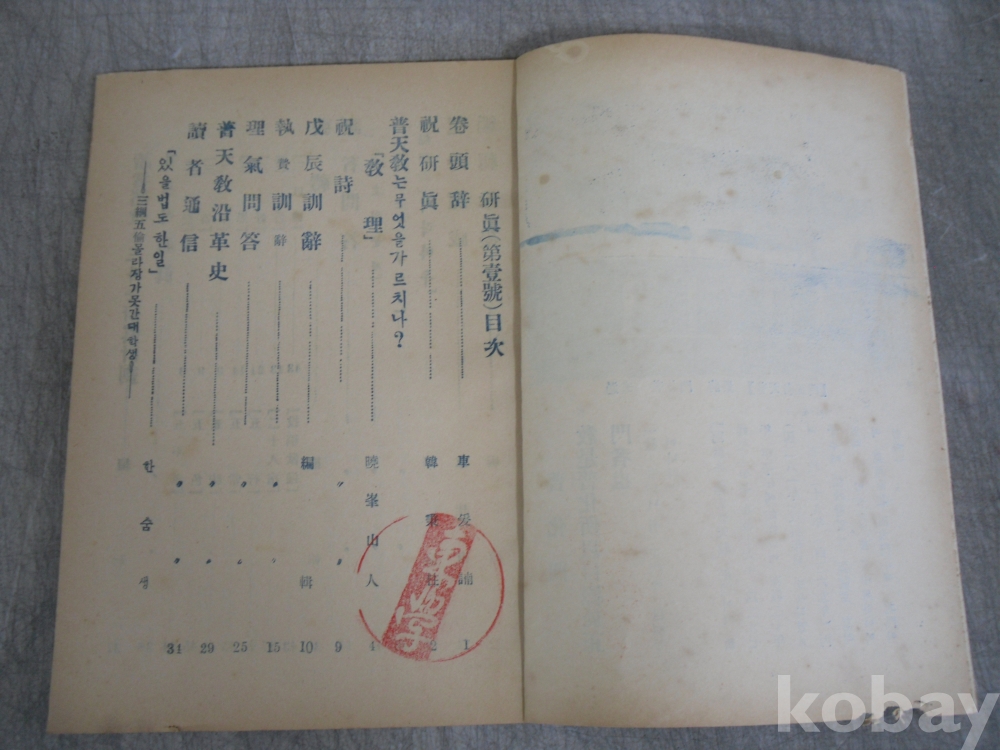 研眞(第壹號)目次
卷頭辞 車 1
祝硏眞 韓
普天敎는무엇을가르치나?
「敎理」 曉峯山人 4
祝詩 〃 〃 9
戊辰訓辭 編輯 10
執贄訓辭 〃 〃 15
理氣問答 〃 〃 25
普天敎沿革史 〃 〃 29
讀者通信 〃 〃 34
「있을법도한일」 한숨생
——三綱五倫몰라장가못간대학생——
東学
kobay